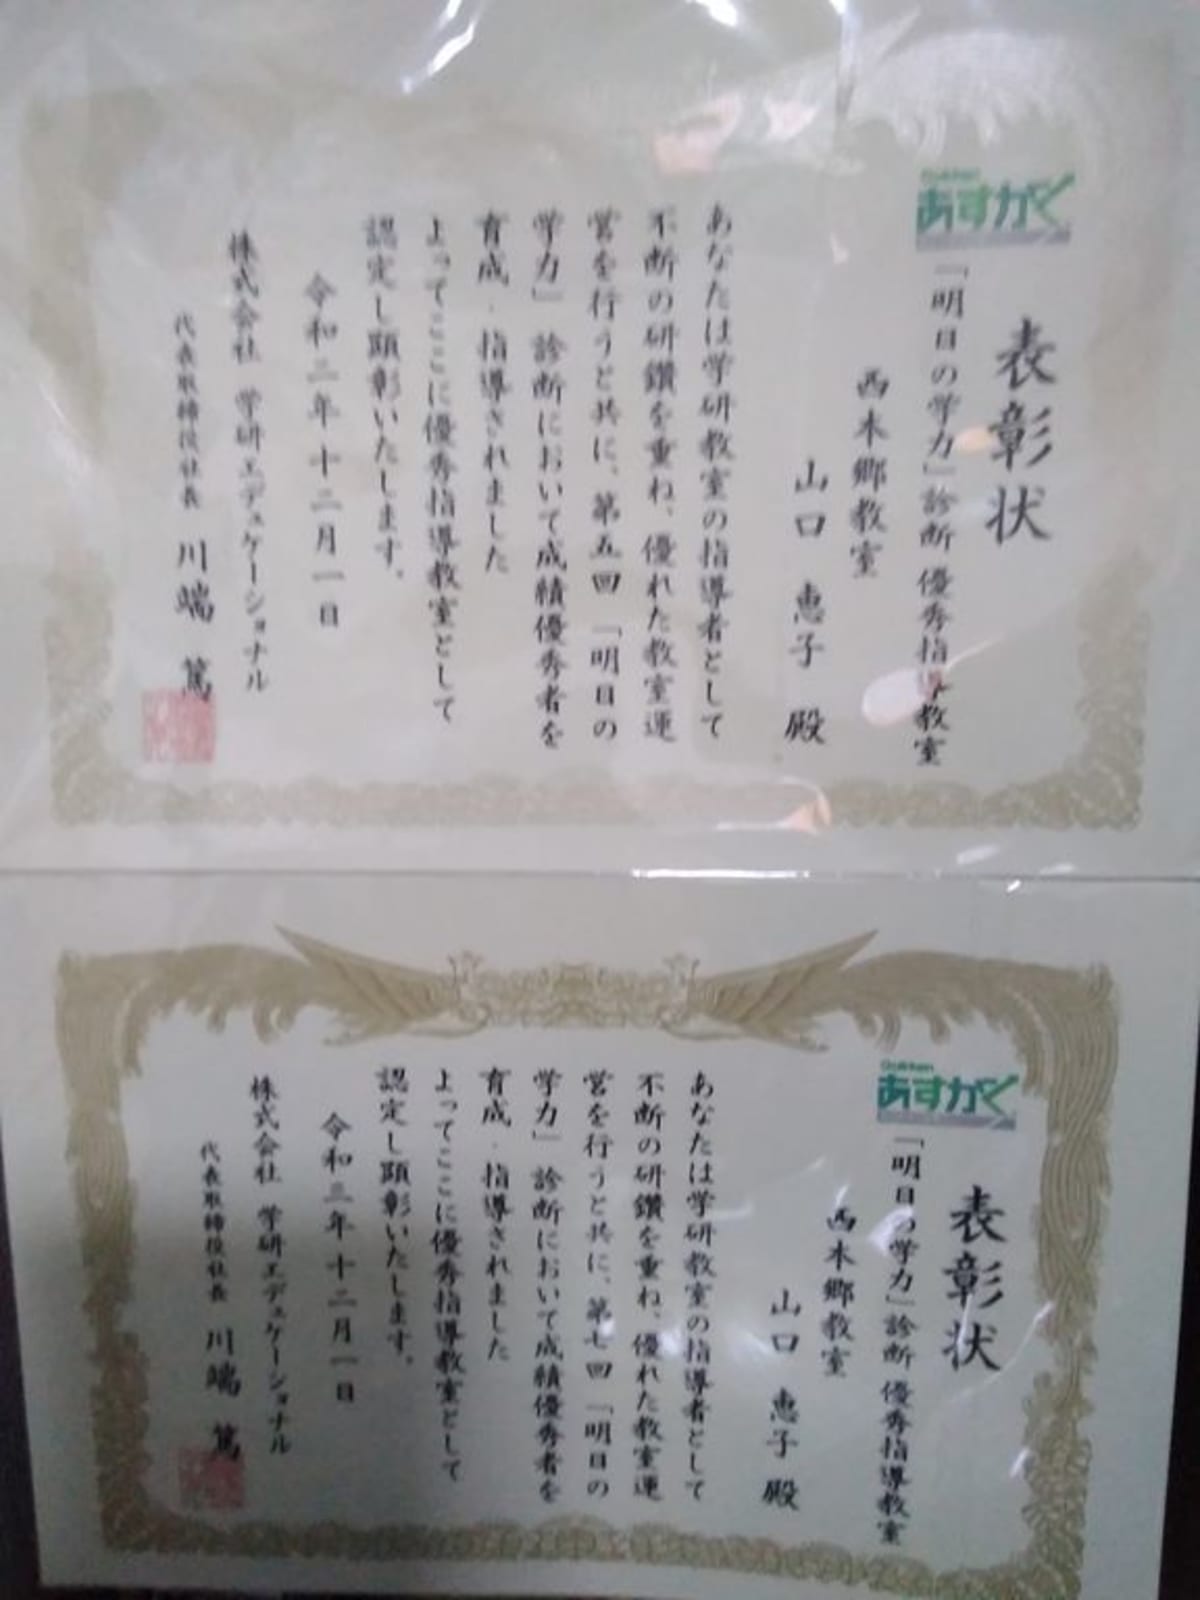 表彰状
Gakken
あすがく
「明日の学力」診断 優秀指導教室
西本郷教室
山口 恵子 殿
あなたは学研教室の指導者として
不断の研鑽を重ね、優れた教室運
営を行うと共に、第五回「明日の
学力」診断において成績優秀者を
育成・指導されました
よってここに優秀指導教室として
認定し顕彰いたします。
令和二年十二月一日
株式会社 学研エデュケーショナル
代表取締役社長 川端 篤
表彰状
Gakken
あすがく
「明日の学力」診断 優秀指導教室
西本郷教室
山口 恵子 殿
あなたは学研教室の指導者として
不断の研鑽を重ね、優れた教室運
営を行うと共に、第七回「明日の
学力」診断において成績優秀者を
育成・指導されました
よってここに優秀指導教室として
認定し顕彰いたします。
令和三年十二月一日
株式会社 学研エデュケーショナル
代表取締役社長 川端 篤